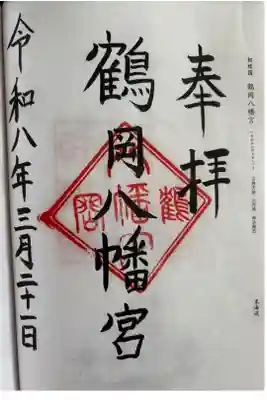 相模国 鶴岡八幡宮
奉拝
鶴岡八幡宮
令和八年三月二十一日